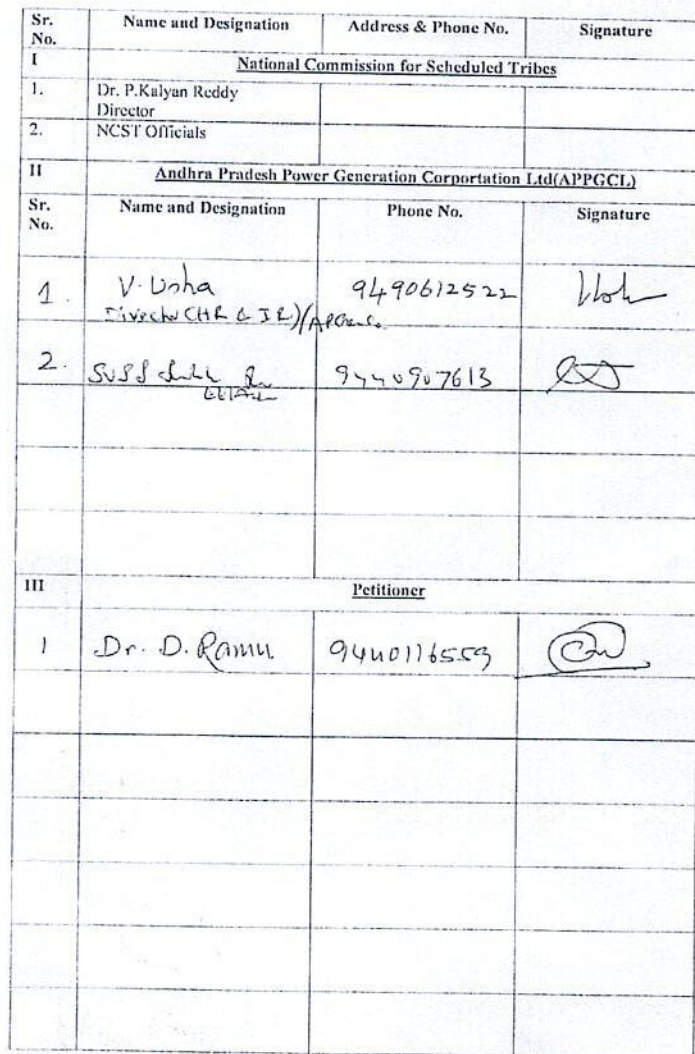 Sr. No. Name and Designation Address & Phone No. Signature
I National Commission for Scheduled Tribes
1. Dr. P.Kalyan Reddy
Director
2. NCST Officials
II Andhra Pradesh Power Generation Corportation Ltd(APPGCL)
Sr. No. Name and Designation Phone No. Signature
1. V. Usha 9490612522
Director (HR & IR)/APGenco
2. 9440907613
III Petitioner
1 Dr. D. Ramu 9440116559